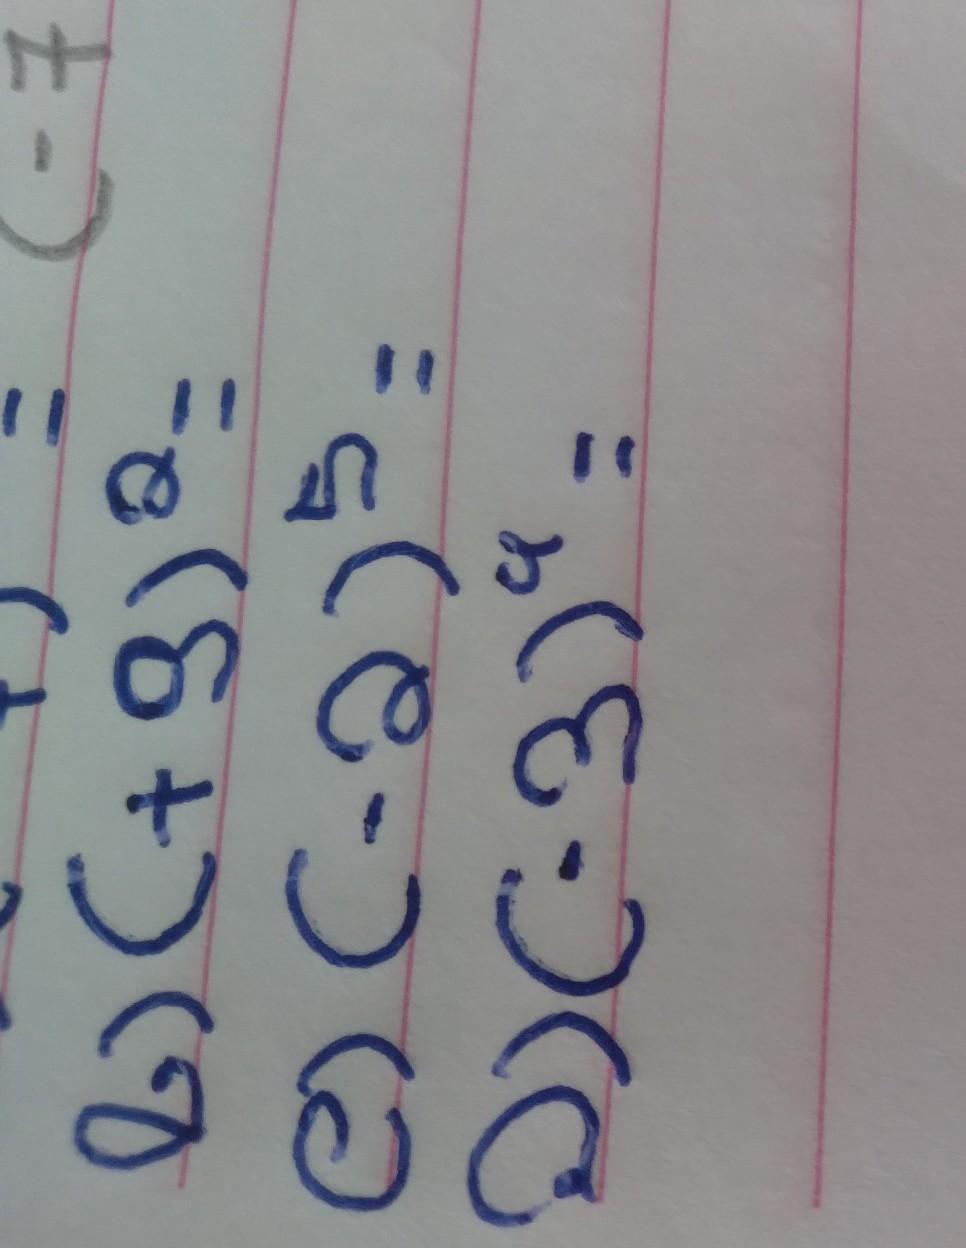 = (-7
b) (+9)² =
c) (-2)⁵ =
d) (-3)⁴ =